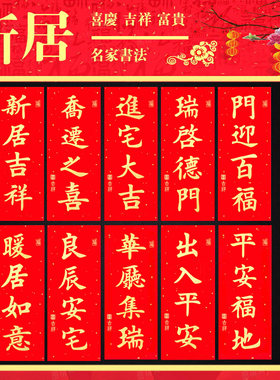 新居
喜慶 吉祥 富貴
名家書法
新居吉祥
喬遷之喜
進宅大吉
瑞啓德門
門迎百福
暖居如意
良辰安宅
華廳集瑞
出入平安
平安福地